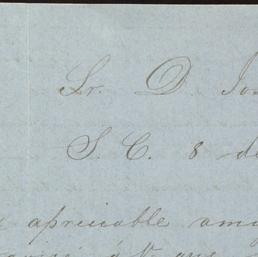 Sr. D. Jos
S. C. 8 de
apreciable ami
que